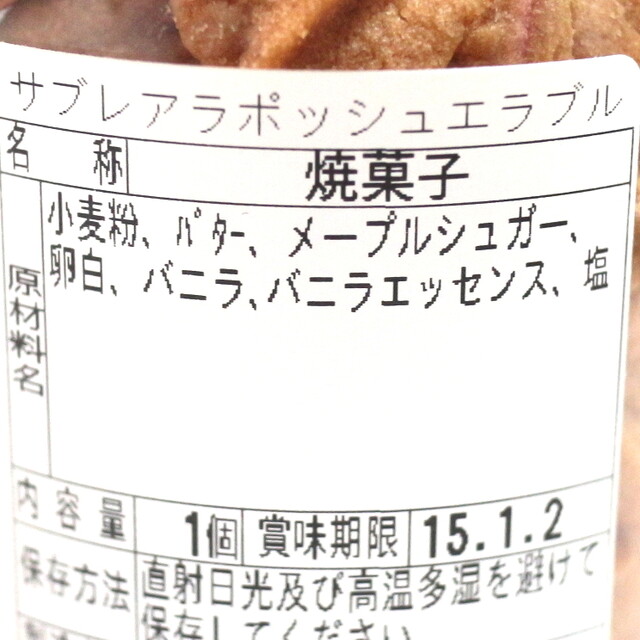 サブレアラポッシュエラブル
名称 焼菓子
原材料名 小麦粉、ﾊﾞﾀｰ、メープルシュガー、
卵白、バニラ、バニラエッセンス、塩
内容量 1個 賞味期限 15.1.2
保存方法 直射日光及び高温多湿を避けて
保存してください